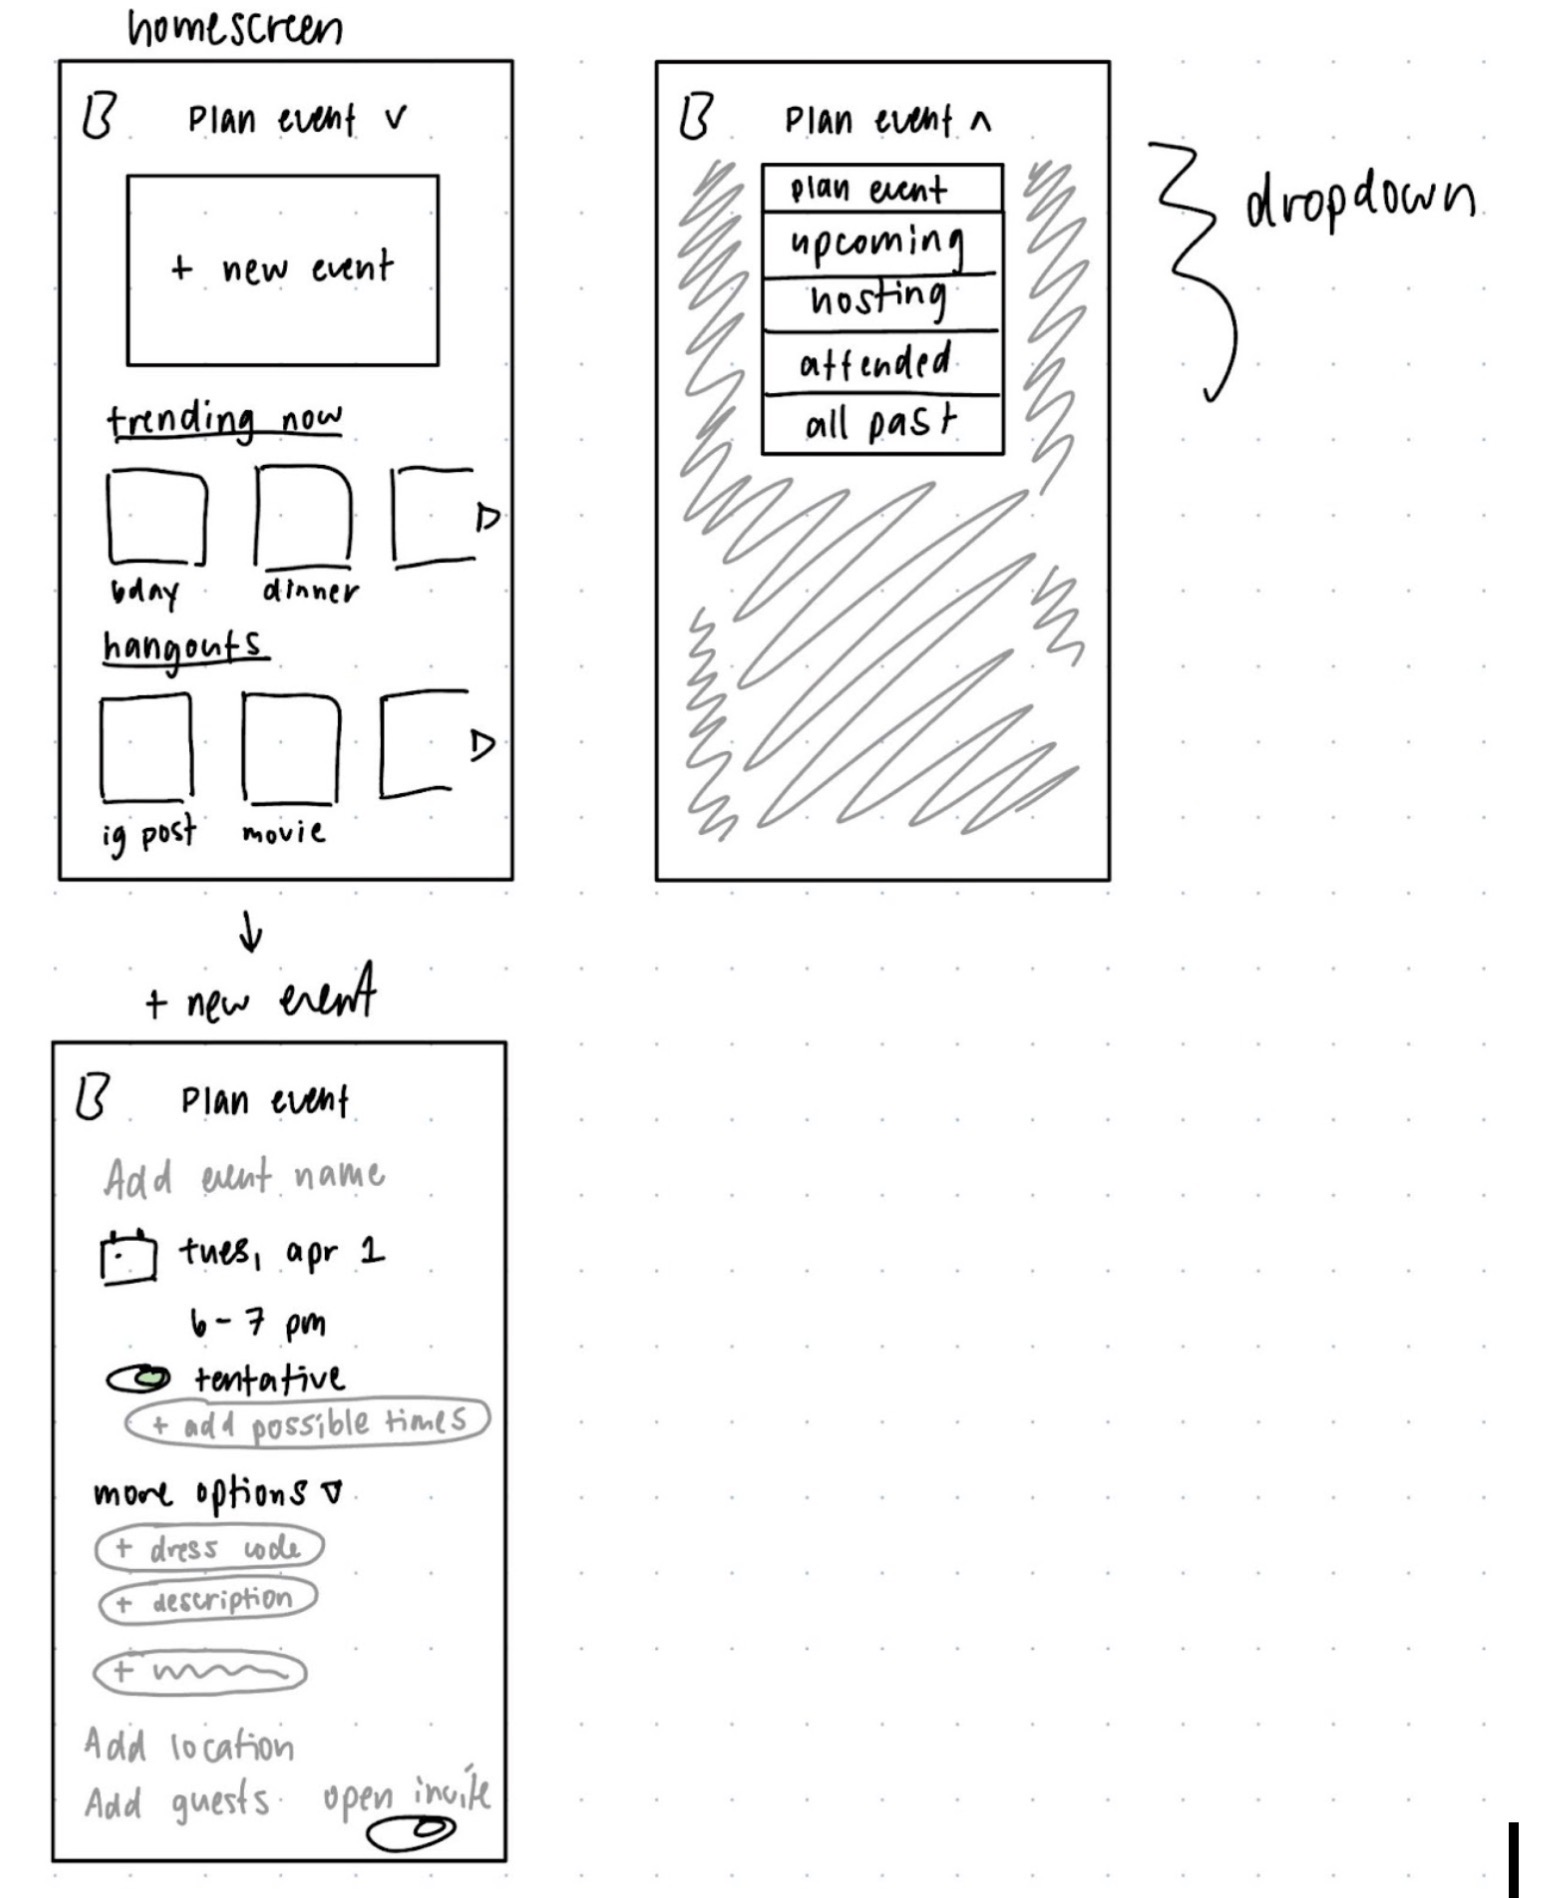 homescreen
B Plan event v
+ new event
trending now
bday dinner
hangouts
ig post movie
B Plan event ^
plan event
upcoming
hosting
attended
all past
dropdown
+ new event
B Plan event
Add event name
tues, apr 1
6-7 pm
tentative
+ add possible times
more options
+ dress code
+ description
+
Add location
Add guests open invite